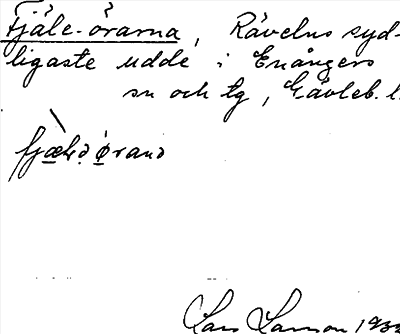 Fjäle-örarna, Rävelns syd-
ligaste udde i Enångers
sn och tg, Gävleb. l.
fjæle ørana
Lars Larsson 193